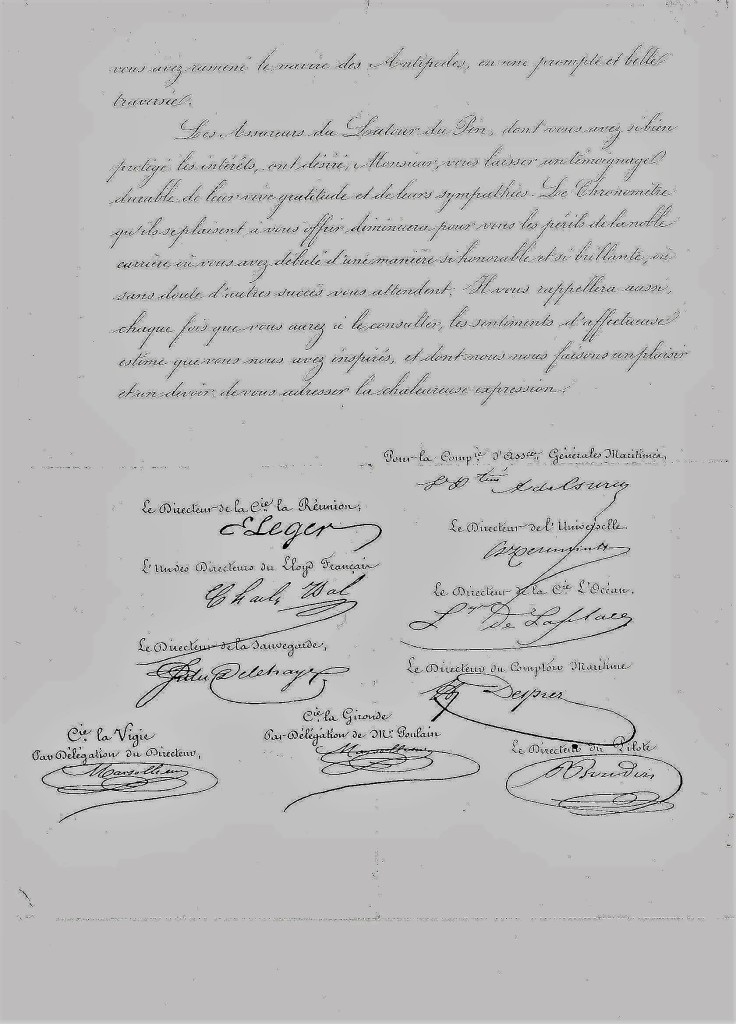 vous avez ramené le navire des Antipodes, en une prompte et belle
traversée.
Les Assureurs du Latour du Pin, dont vous avez si bien
protégé les intérêts, ont désiré, Monsieur, vous laisser un témoignage
durable de leur vive gratitude et de leurs sympathies. Le Chronomètre
qu'ils se plaisent à vous offrir, diminuera pour vous les périls de la noble
carrière où vous avez débuté d'une manière si honorable et si brillante, où
sans doute d'autres succès vous attendent. Il vous rappellera aussi,
chaque fois que vous aurez à le consulter, les sentiments d'affectueuse
estime que vous nous avez inspirés, et dont nous nous faisons un plaisir
et un devoir de vous adresser la chaleureuse expression.
Pour la Compie d'Assces Générales Maritimes,
Le Directeur de la Cie la Réunion,
E Leger
Le Directeur de l'Universelle
L'Un des Directeurs du Lloyd Français
Le Directeur de la Cie L'Océan,
De Laplace
Le Directeur de la Sauvegarde,
Jules Delehaye
Le Directeur du Comptoir Maritime
Desprez
Cie la Vigie
Par Délégation du Directeur,
Cie la Gironde
Par Délégation de Mr Poulain
Le Directeur du Pilote
Boudin